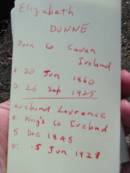 Elizabeth
DUNNE
Born Co Cavan
Ireland
20 Jun 1860
26 Sep 1925
Husband Lawrence
King's Co Ireland
5 Dec 1845
5 Jun 1928